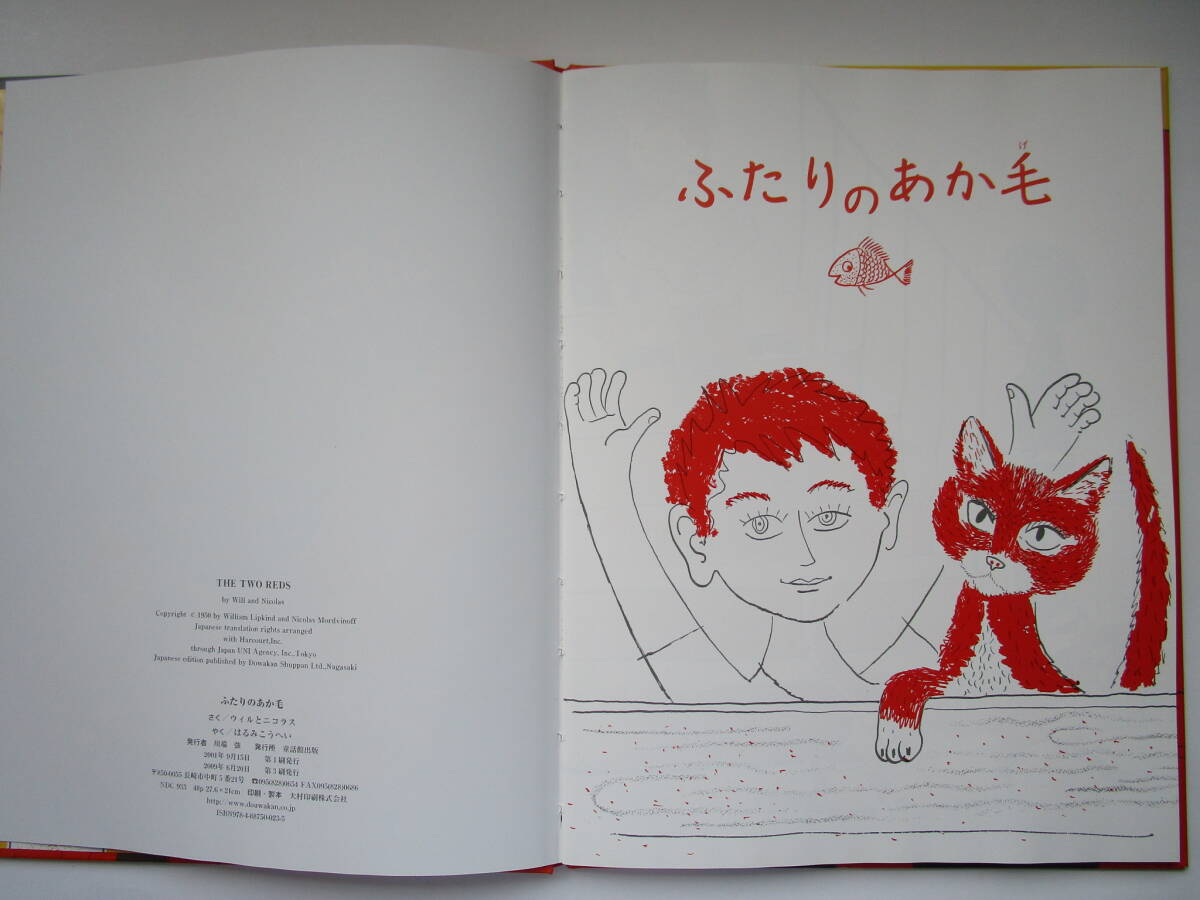 THE TWO REDS
by Will and Nicolas
Copyright © 1950 by William Lipkind and Nicolas Mordvinoff
Japanese translation rights arranged
with Harcourt,Inc.
through Japan UNI Agency, Inc.,Tokyo
Japanese edition published by Dowakan Shuppan Ltd.,Nagasaki
ふたりのあか毛
さく/ウィルとニコラス
やく/はるみこうへい
発行者 川端 強 発行所 童話館出版
2001年9月15日 第1刷発行
2009年8月20日 第3刷発行
〒850-0055 長崎市中町5番21号 ☎095(828)0654 FAX095(828)0686
NDC 933 48p 27.6×21cm 印刷・製本 大村印刷株式会社
http://www.douwakan.co.jp
ISBN978-4-88750-023-5
ふたりのあか毛
げ